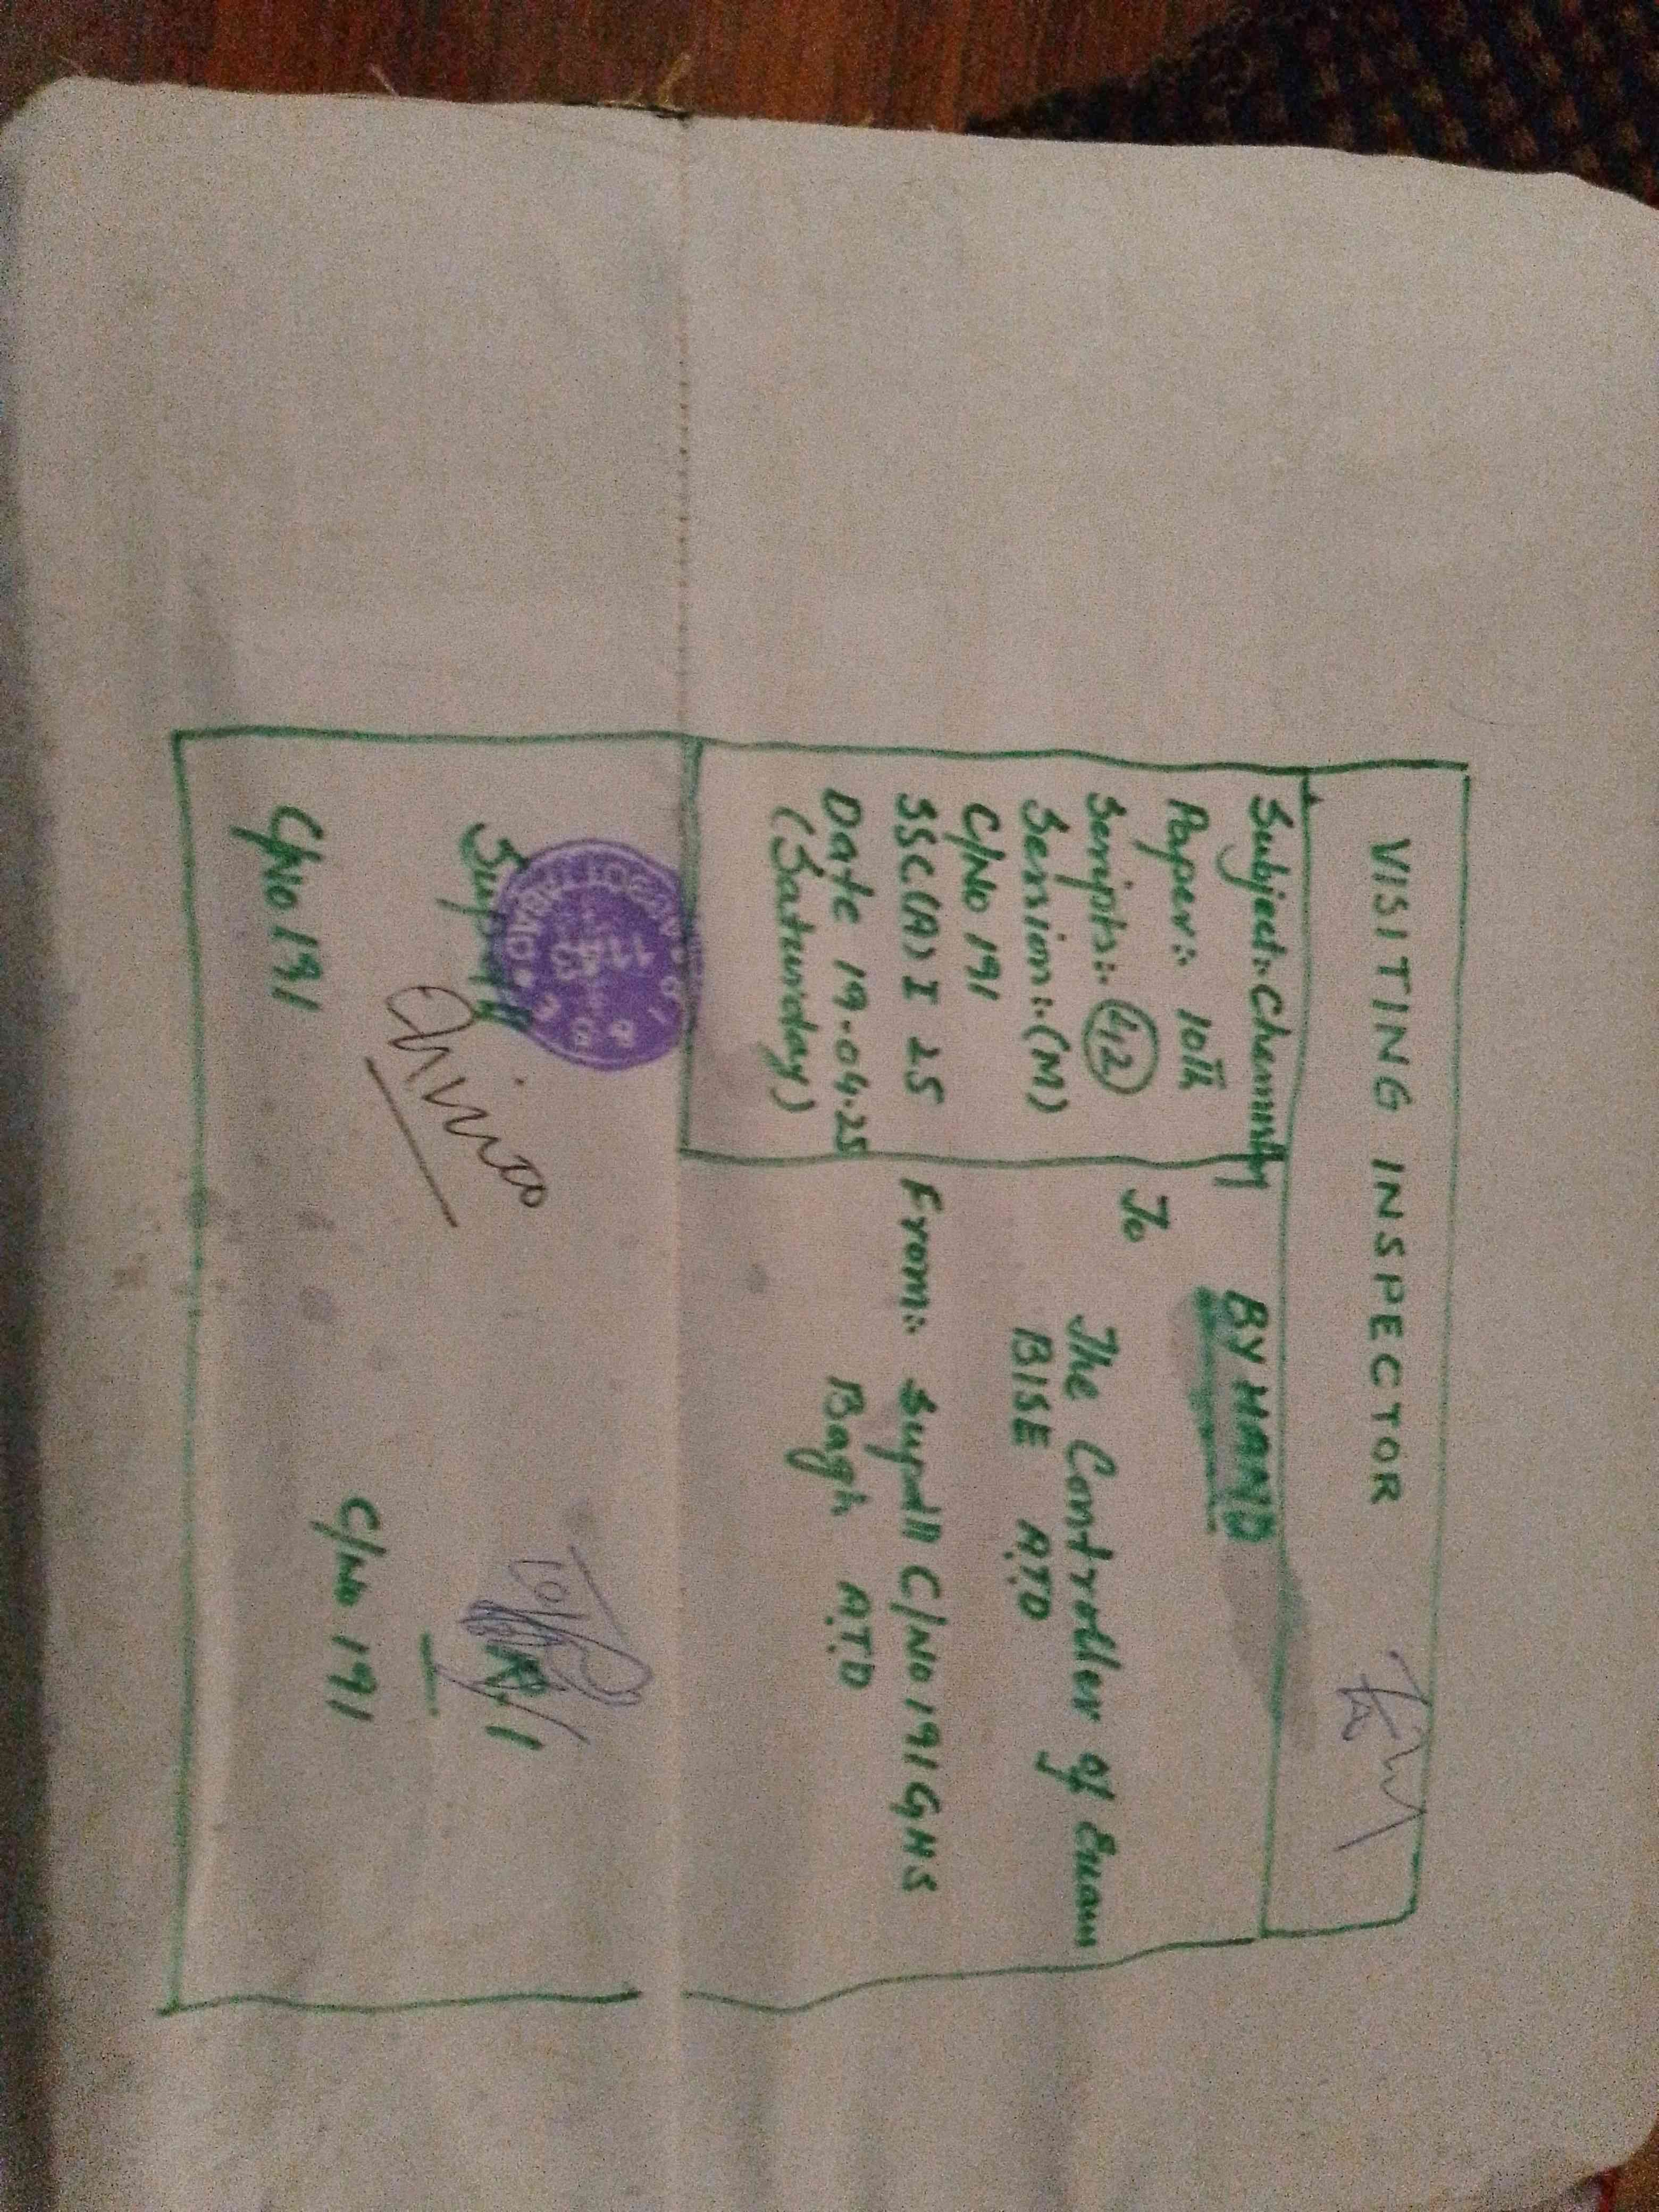 VISITING INSPECTOR
BY HAND
Subject:. Chemistry
Paper:. 10th
Scripts:. 42
Session:. (M)
C/No 191
SSC(A) I 25
Date 19.04.25
(Saturday)
To
The Controller of Exam
BISE A.T.D
From:. Supdtt C/No 191 GHS
Bagh A.T.D
C/No 191
C/No 191